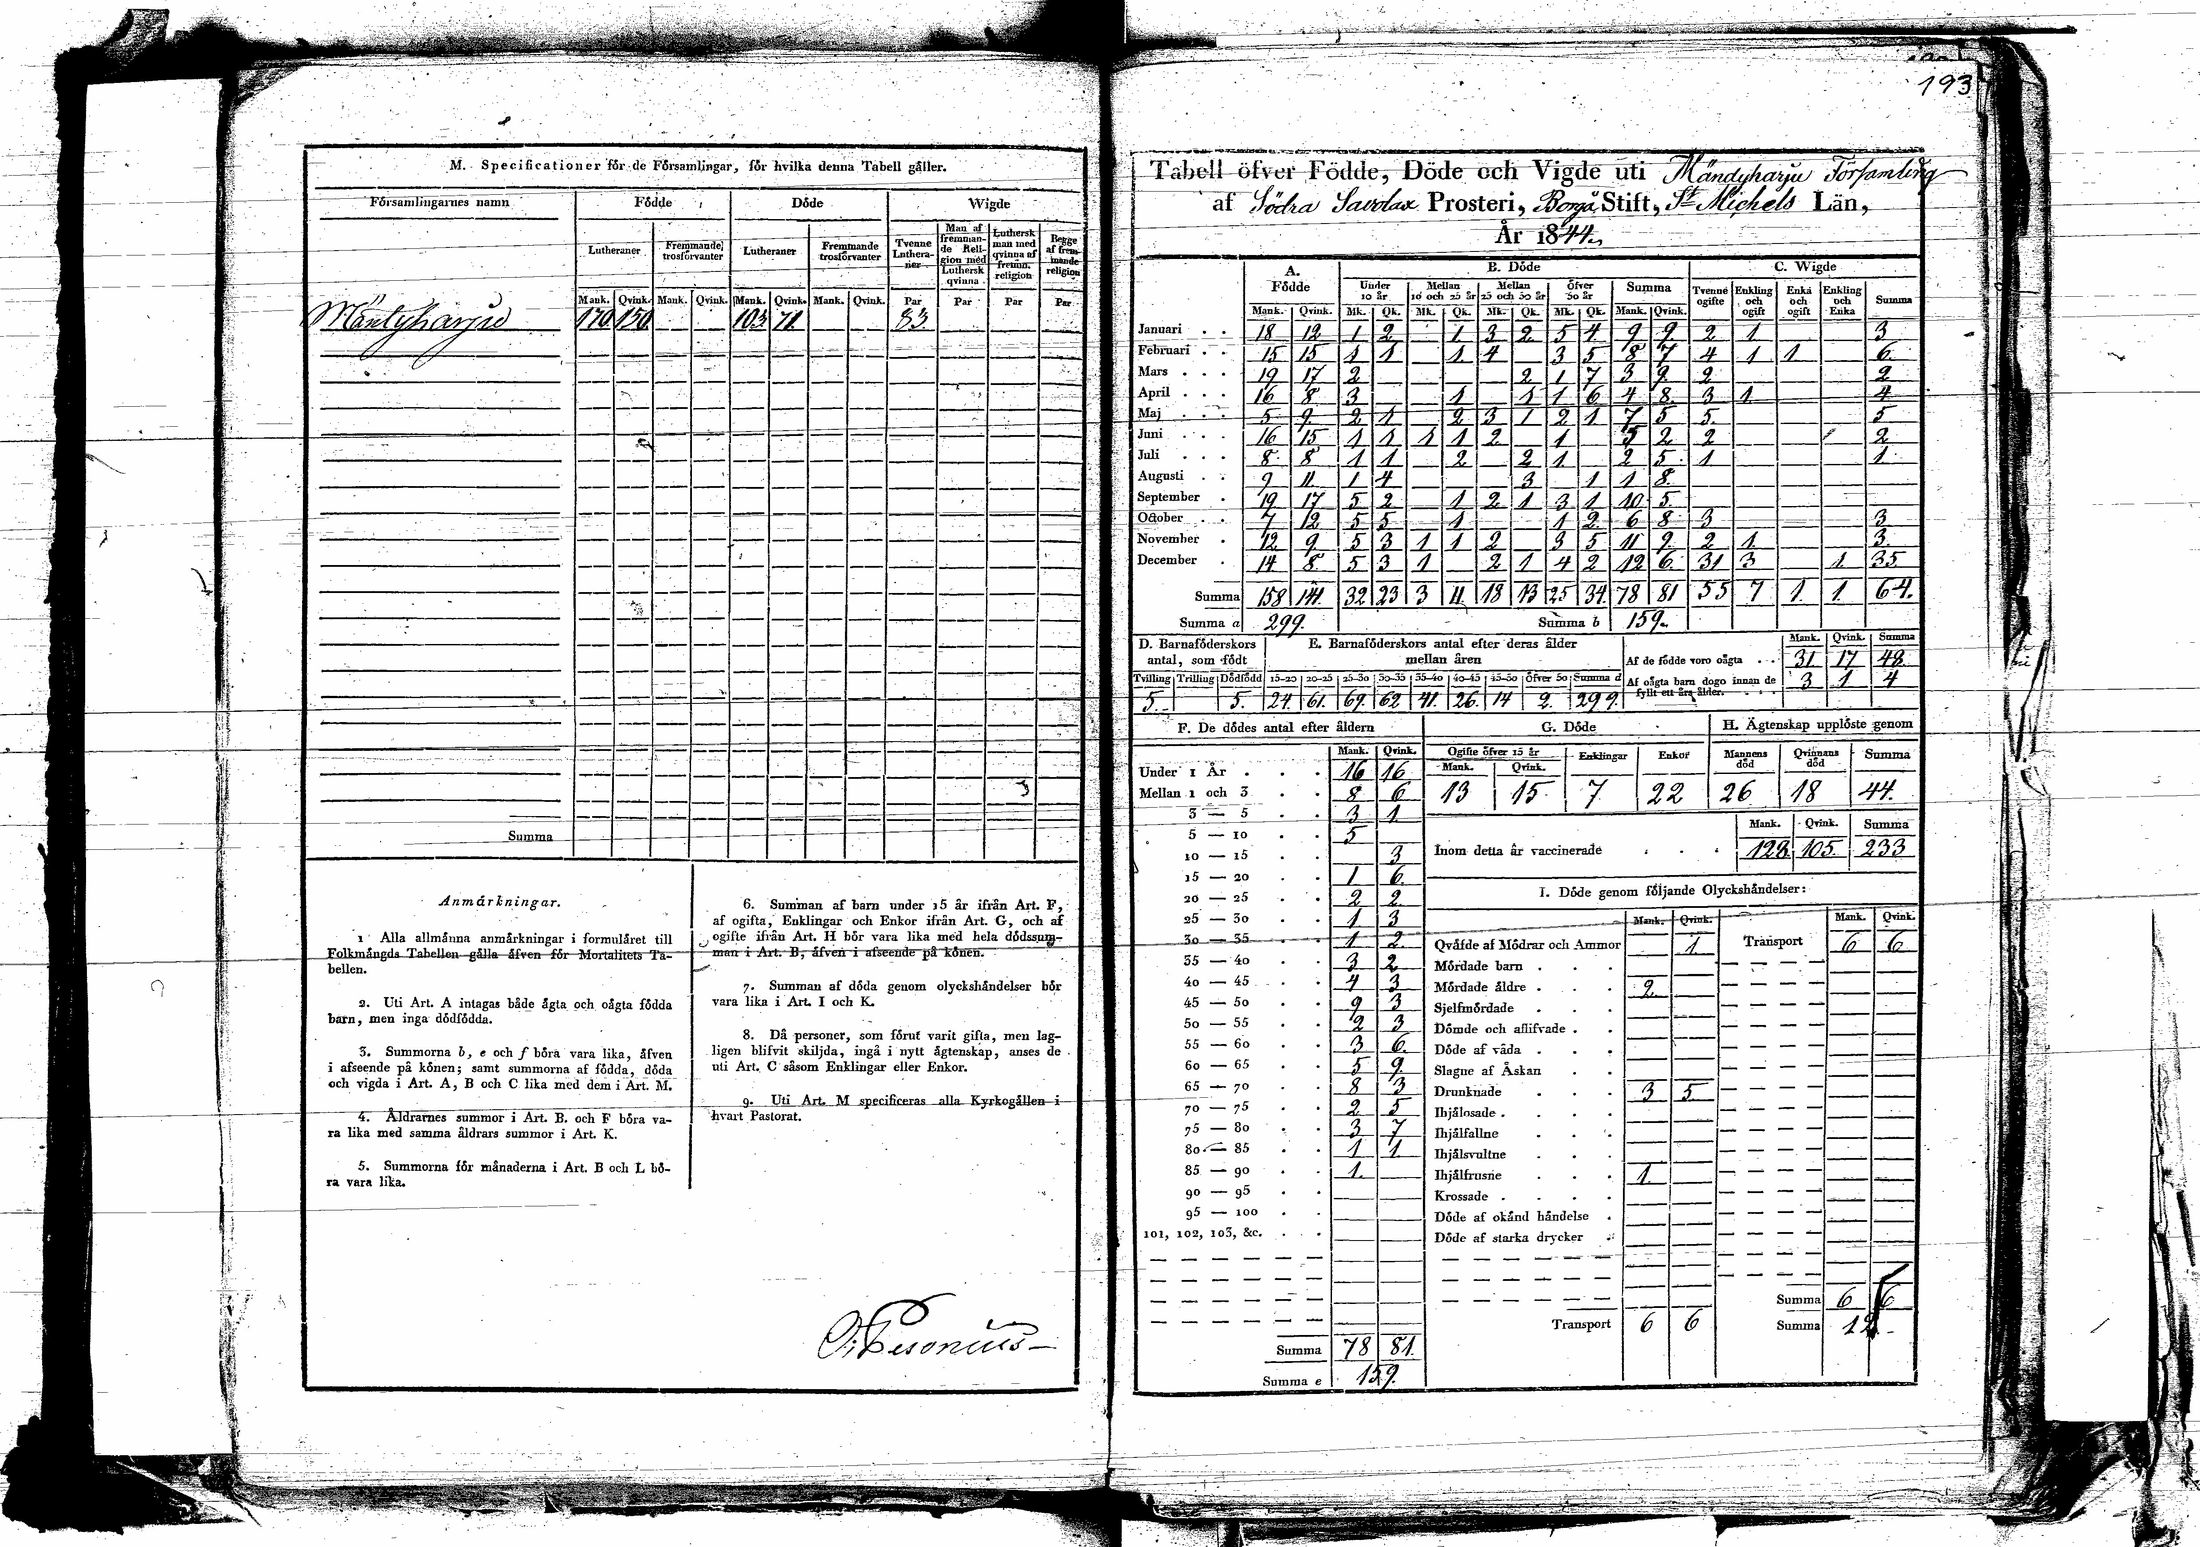 193
M. Specificationer för de Församlingar, för hvilka denna Tabell gäller.
Församlingarnes namn Födde Döde Wigde
Lutheraner Fremmande trosförvanter Lutheraner Fremmande trosförvanter Tvenne Luthera-ner Man af fremman-de Reli-gion med Luthersk qvinna Luthersk man med qvinna af fremm. religion Begge af frem-mande religion
Mank. Qvink. Mank. Qvink. Mank. Qvink. Mank. Qvink. Par Par Par Par
Mäntyharju 170 150 103 71 83
Summa
Anmärkningar.
1 Alla allmänna anmärkningar i formuläret till
Folkmängds Tabellen gälla äfven för Mortalitets Ta-
bellen.
2. Uti Art. A intagas både ägta och oägta födda
barn, men inga dödfödda.
3. Summorna b, e och f böra vara lika, äfven
i afseende på könen; samt summorna af födda, döda
och vigda i Art. A, B och C lika med dem i Art. M.
4. Åldrarnes summor i Art. B. och F böra va-
ra lika med samma åldrars summor i Art. K.
5. Summorna för månaderna i Art. B och L bö-
ra vara lika.
6. Summan af barn under 15 år ifrån Art. F,
af ogifta, Enklingar och Enkor ifrån Art. G, och af
ogifte ifrån Art. H bör vara lika med hela dödssum-
man i Art. B, äfven i afseende på könen.
7. Summan af döda genom olyckshändelser bör
vara lika i Art. I och K.
8. Då personer, som förut varit gifta, men lag-
ligen blifvit skiljda, ingå i nytt ägtenskap, anses de
uti Art. C såsom Enklingar eller Enkor.
9. Uti Art. M specificeras alla Kyrkogällen i
hvart Pastorat.
Tabell öfver Födde, Döde och Vigde uti Mändyharju Församling
af Södra Savolax Prosteri, Borgå Stift, St Michels Län,
År 1844.
A. Födde B. Döde C. Wigde
Under 10 år Mellan 10 och 25 år Mellan 25 och 50 år Öfver 50 år Summa Tvenne ogifte Enkling och ogift Enka och ogift Enkling och Enka Summa
Mank. Qvink. Mk. Qk. Mk. Qk. Mk. Qk. Mk. Qk. Mank. Qvink.
Januari 18 12 1 2 1 3 2 5 4 9 9 2 1 3
Februari 15 15 1 1 1 4 3 5 8 7 4 1 1 6
Mars 19 17 2 2 1 7 3 9 2 2
April 16 8 3 1 1 1 6 4 8 3 1 4
Maj 5 9 2 1 2 3 1 2 1 7 5 5 5
Juni 16 15 1 1 1 1 2 1 5 2 2 2
Juli 8 8 1 1 2 2 1 2 5 1 1
Augusti 9 11 1 4 3 1 1 8
September 19 17 5 2 1 2 1 3 1 10 5
October 7 12 5 5 1 1 2 6 8 3 3
November 12 9 5 3 1 1 2 3 5 11 9 2 1 3
December 14 8 5 3 1 2 1 4 2 12 6 31 3 1 35
Summa 158 141 32 23 3 11 18 13 25 34 78 81 55 7 1 1 64
Summa a 299. Summa b 159.
D. Barnaföderskors antal, som födt E. Barnaföderskors antal efter deras ålder mellan åren Mank. Qvink. Summa
Af de födde voro oägta 31 17 48
Af oägta barn dogo innan de fyllt ett års ålder. 3 1 4
Tvilling Trilling Dödfödd 15-20 20-25 25-30 30-35 35-40 40-45 45-50 Öfver 50 Summa d
5 5 24 61 69 62 41 26 14 2 299
F. De dödes antal efter åldern
Mank. Qvink.
Under 1 År 16 16
Mellan 1 och 3 8 6
3 — 5 3 1
5 — 10 5
10 — 15 3
15 — 20 1 6
20 — 25 2 2
25 — 30 1 3
30 — 35 1 2
35 — 40 3 2
40 — 45 4 3
45 — 50 9 3
50 — 55 2 3
55 — 60 3 6
60 — 65 5 9
65 — 70 8 3
70 — 75 2 5
75 — 80 3 7
80 — 85 1 1
85 — 90 1
90 — 95
95 — 100
101, 102, 103, &c.
Summa 78 81
Summa e 159.
G. Döde H. Ägtenskap upplöste genom
Ogifte öfver 15 år Enklingar Enkor Mannens död Qvinnans död Summa
Mank. Qvink.
13 15 7 22 26 18 44
Mank. Qvink. Summa
Inom detta år vaccinerade 128 105 233
I. Döde genom följande Olyckshändelser:
Mank. Qvink. Mank. Qvink.
Qväfde af Mödrar och Ammor 1 Transport 6 6
Mördade barn
Mördade äldre 2
Sjelfmördade
Dömde och aflifvade
Döde af våda
Slagne af Åskan
Drunknade 3 5
Ihjälosade
Ihjälfallne
Ihjälsvultne
Ihjälfrusne 1
Krossade
Döde af okänd händelse
Döde af starka drycker
Summa 6 6
Transport 6 6 Summa 12